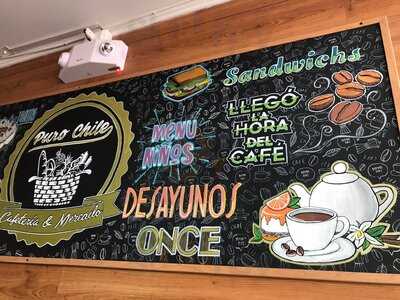 Puro Chile
Cafetería & Mercado
MENÚ
NIÑOS
Sandwichs
LLEGÓ
LA
HORA
DEL
CAFÉ
DESAYUNOS
ONCE